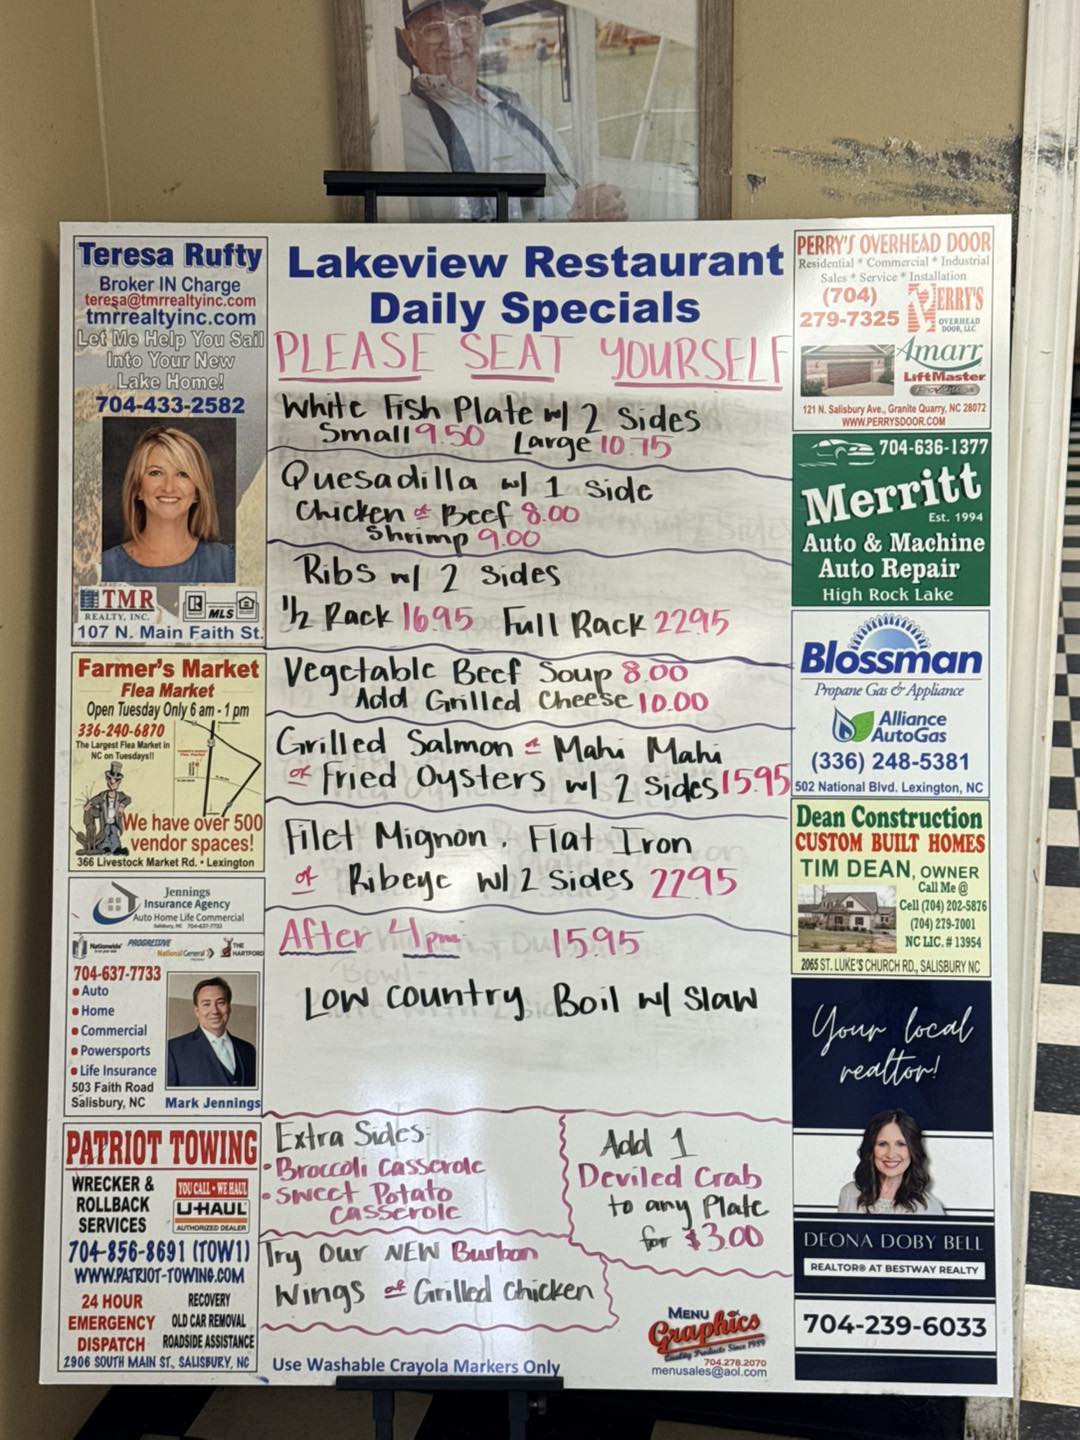 Teresa Rufty
Broker IN Charge
teresa@tmrrealtyinc.com
tmrrealtyinc.com
Let Me Help You Sail
Into Your New
Lake Home!
704-433-2582
TMR
REALTY, INC.
R
REALTOR
MLS
107 N. Main Faith St.
Farmer's Market
Flea Market
Open Tuesday Only 6 am - 1 pm
336-240-6870
The Largest Flea Market in
NC on Tuesdays!!
We have over 500
vendor spaces!
366 Livestock Market Rd. • Lexington
Jennings
Insurance Agency
Auto Home Life Commercial
Salisbury, NC 704-637-7733
Nationwide
PROGRESSIVE
National General
THE
HARTFORD
704-637-7733
• Auto
• Home
• Commercial
• Powersports
• Life Insurance
503 Faith Road
Salisbury, NC
Mark Jennings
PATRIOT TOWING
WRECKER &
ROLLBACK
SERVICES
YOU CALL • WE HAUL
U-HAUL
AUTHORIZED DEALER
704-856-8691 (TOW1)
WWW.PATRIOT-TOWING.COM
24 HOUR
EMERGENCY
DISPATCH
RECOVERY
OLD CAR REMOVAL
ROADSIDE ASSISTANCE
2906 SOUTH MAIN ST., SALISBURY, NC
Lakeview Restaurant
Daily Specials
PLEASE SEAT YOURSELF
White Fish Plate w/ 2 Sides
Small 9.50 Large 10.75
Quesadilla w/ 1 Side
Chicken or Beef 8.00
Shrimp 9.00
Ribs w/ 2 Sides
1/2 Rack 16.95 Full Rack 22.95
Vegetable Beef Soup 8.00
Add Grilled Cheese 10.00
Grilled Salmon or Mahi Mahi
or Fried Oysters w/ 2 Sides 15.95
Filet Mignon, Flat Iron
or Ribeye w/ 2 Sides 22.95
After 4pm 15.95
Low Country Boil w/ Slaw
Extra Sides:
• Broccoli Casserole
• Sweet Potato
Casserole
Add 1
Deviled Crab
to any Plate
for $3.00
Try Our NEW Burbon
Wings or Grilled Chicken
Use Washable Crayola Markers Only
MENU
Graphics
Quality Products Since 1959
704.278.2070
menusales@aol.com
PERRY'S OVERHEAD DOOR
Residential * Commercial * Industrial
Sales * Service * Installation
(704)
279-7325
PERRY'S
OVERHEAD
DOOR, LLC
Amarr
LiftMaster
121 N. Salisbury Ave., Granite Quarry, NC 28072
WWW.PERRYSDOOR.COM
704-636-1377
Merritt
Est. 1994
Auto & Machine
Auto Repair
High Rock Lake
Blossman
Propane Gas & Appliance
Alliance
AutoGas
(336) 248-5381
502 National Blvd. Lexington, NC
Dean Construction
CUSTOM BUILT HOMES
TIM DEAN, OWNER
Call Me @
Cell (704) 202-5876
(704) 279-7001
NC LIC. # 13954
2065 ST. LUKE'S CHURCH RD., SALISBURY NC
Your local
realtor!
DEONA DOBY BELL
REALTOR® AT BESTWAY REALTY
704-239-6033